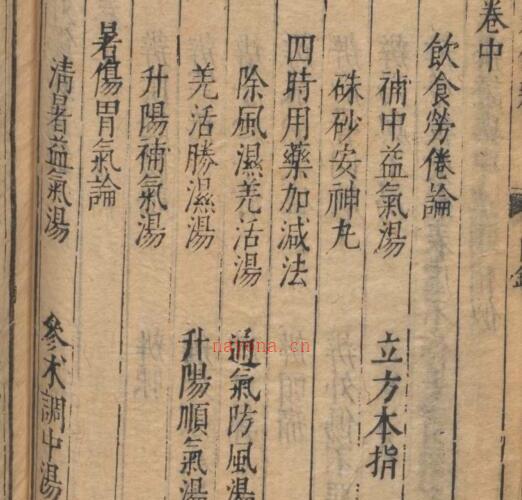 卷中
飲食勞倦論
補中益氣湯 立方本指
硃砂安神丸
四時用藥加减法
除風濕羌活湯 通氣防風湯
羌活勝濕湯 升陽順氣湯
升陽補氣湯
暑傷胃氣論
清暑益氣湯 參术調中湯
nayona.cn